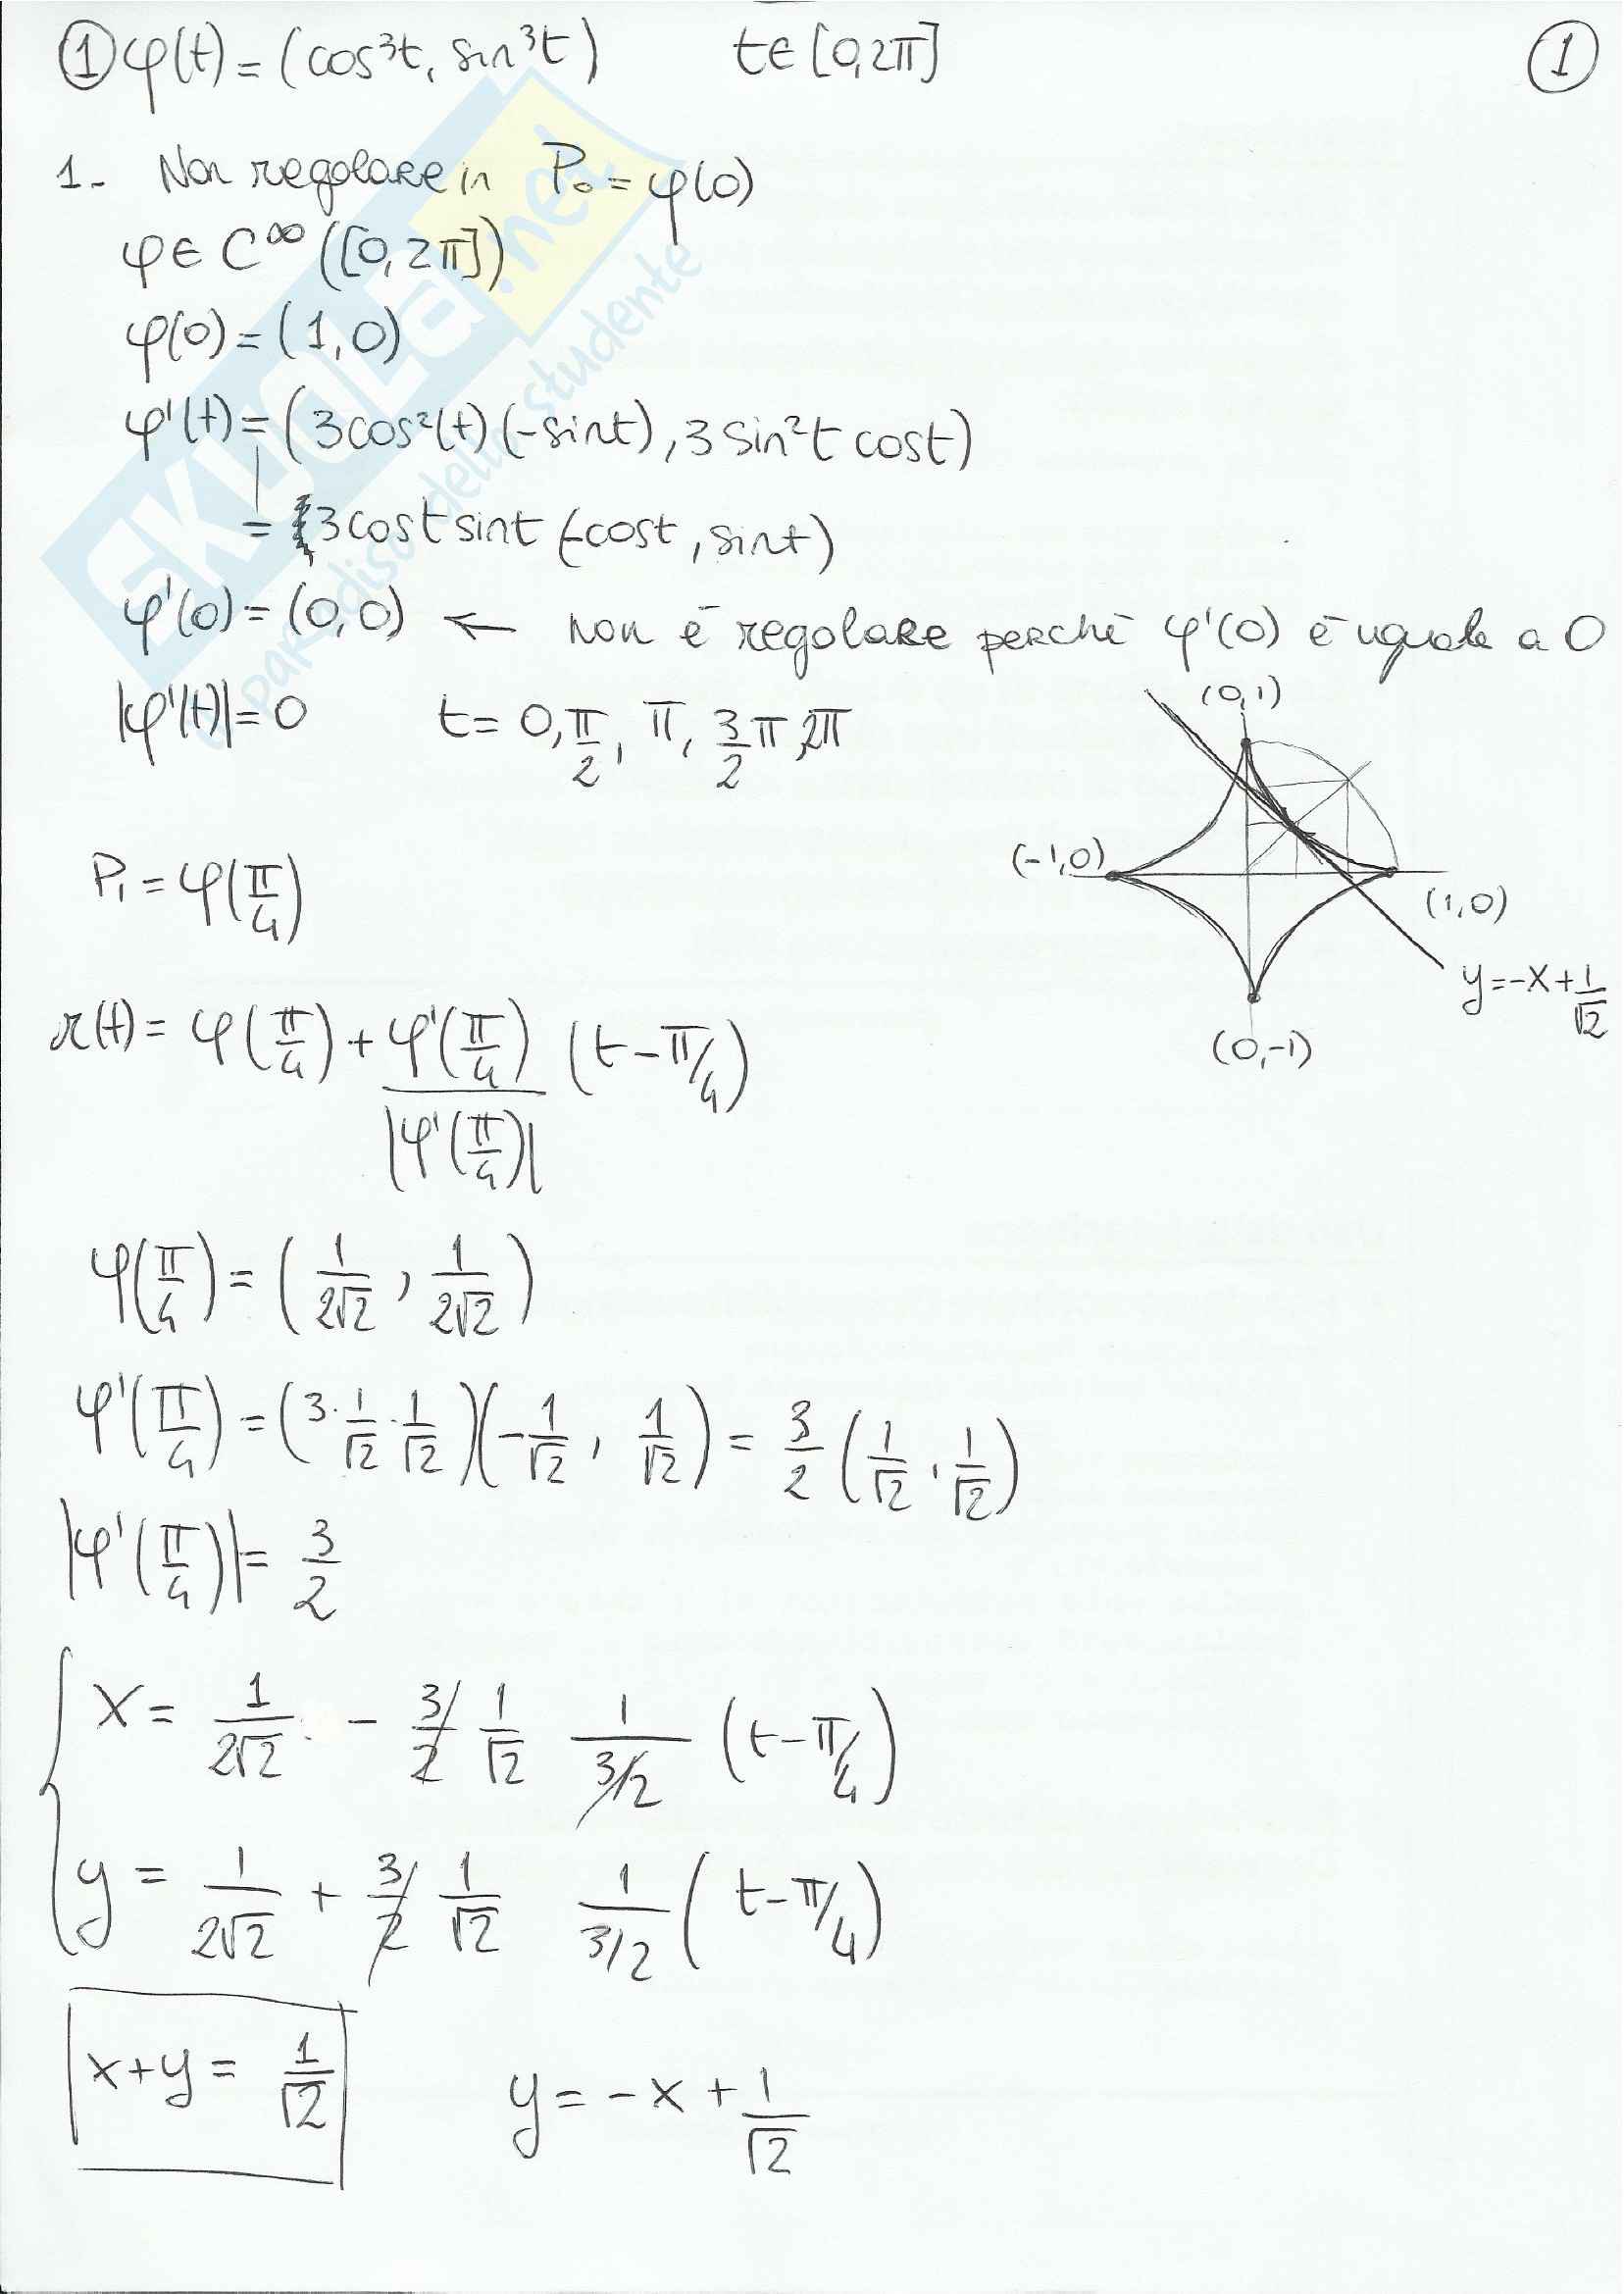 ① φ(t) = (cos³t, sin³t)   t∈[0,2π]   ①
1- Non regolare in P₀ = φ(0)
φ ∈ C^∞ ([0,2π])
φ(0) = (1,0)
φ'(t) = (3cos²(t)(-sint), 3 sin²t cost)
= 3cost sint (-cost, sint)
φ'(0) = (0,0) ← non è regolare perchè φ'(0) è uguale a 0
|φ'(t)| = 0   t = 0, π/2, π, 3/2 π, 2π
(0,1)
(-1,0)
(1,0)
y = -x + 1/√2
(0,-1)
P₁ = φ(π/4)
r(t) = φ(π/4) + φ'(π/4)/|φ'(π/4)| (t - π/4)
φ(π/4) = (1/2√2, 1/2√2)
φ'(π/4) = (3·1/√2·1/√2)(-1/√2, 1/√2) = 3/2 (1/√2, 1/√2)
|φ'(π/4)| = 3/2
x = 1/2√2 - 3/2 1/√2 1/(3/2) (t - π/4)
y = 1/2√2 + 3/2 1/√2 1/(3/2) (t - π/4)
x + y = 1/√2   y = -x + 1/√2
SKUOLA.net
paradiso dello studente